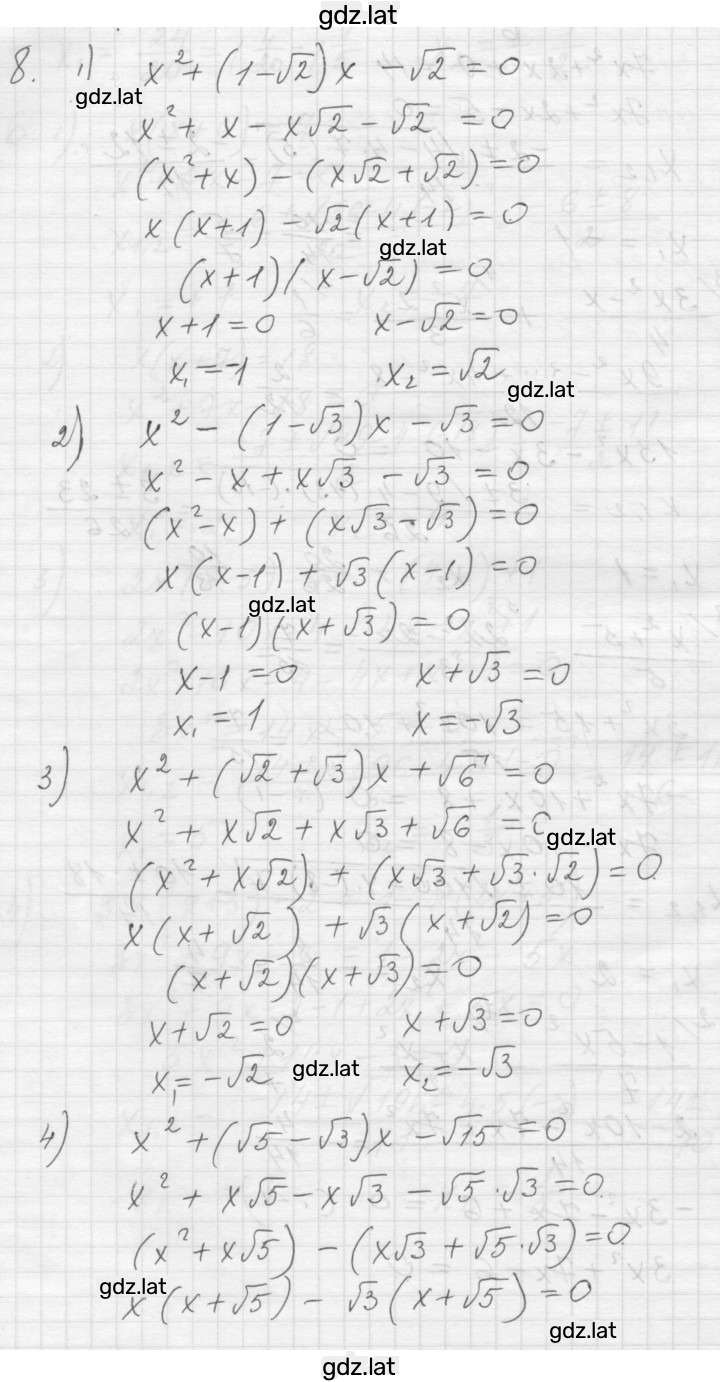 gdz.lat
8. 1) x² + (1-√2)x - √2 = 0
gdz.lat
x² + x - x√2 - √2 = 0
(x² + x) - (x√2 + √2) = 0
x(x+1) - √2(x+1) = 0
gdz.lat
(x+1)(x-√2) = 0
x+1=0 x-√2=0
x₁ = -1 x₂ = √2
gdz.lat
2) x² - (1-√3)x - √3 = 0
x² - x + x√3 - √3 = 0
(x²-x) + (x√3-√3) = 0
x(x-1) + √3(x-1) = 0
gdz.lat
(x-1)(x+√3) = 0
x-1=0 x+√3=0
x₁ = 1 x=-√3
3) x² + (√2+√3)x + √6 = 0
x² + x√2 + x√3 + √6 = 0
gdz.lat
(x² + x√2) + (x√3 + √3·√2) = 0
x(x+√2) + √3(x+√2) = 0
(x+√2)(x+√3) = 0
x+√2=0 x+√3=0
x₁ = -√2 gdz.lat x₂ = -√3
4) x² + (√5-√3)x - √15 = 0
x² + x√5 - x√3 - √5·√3 = 0
(x² + x√5) - (x√3 + √5·√3) = 0
gdz.lat
x(x+√5) - √3(x+√5) = 0
gdz.lat
gdz.lat